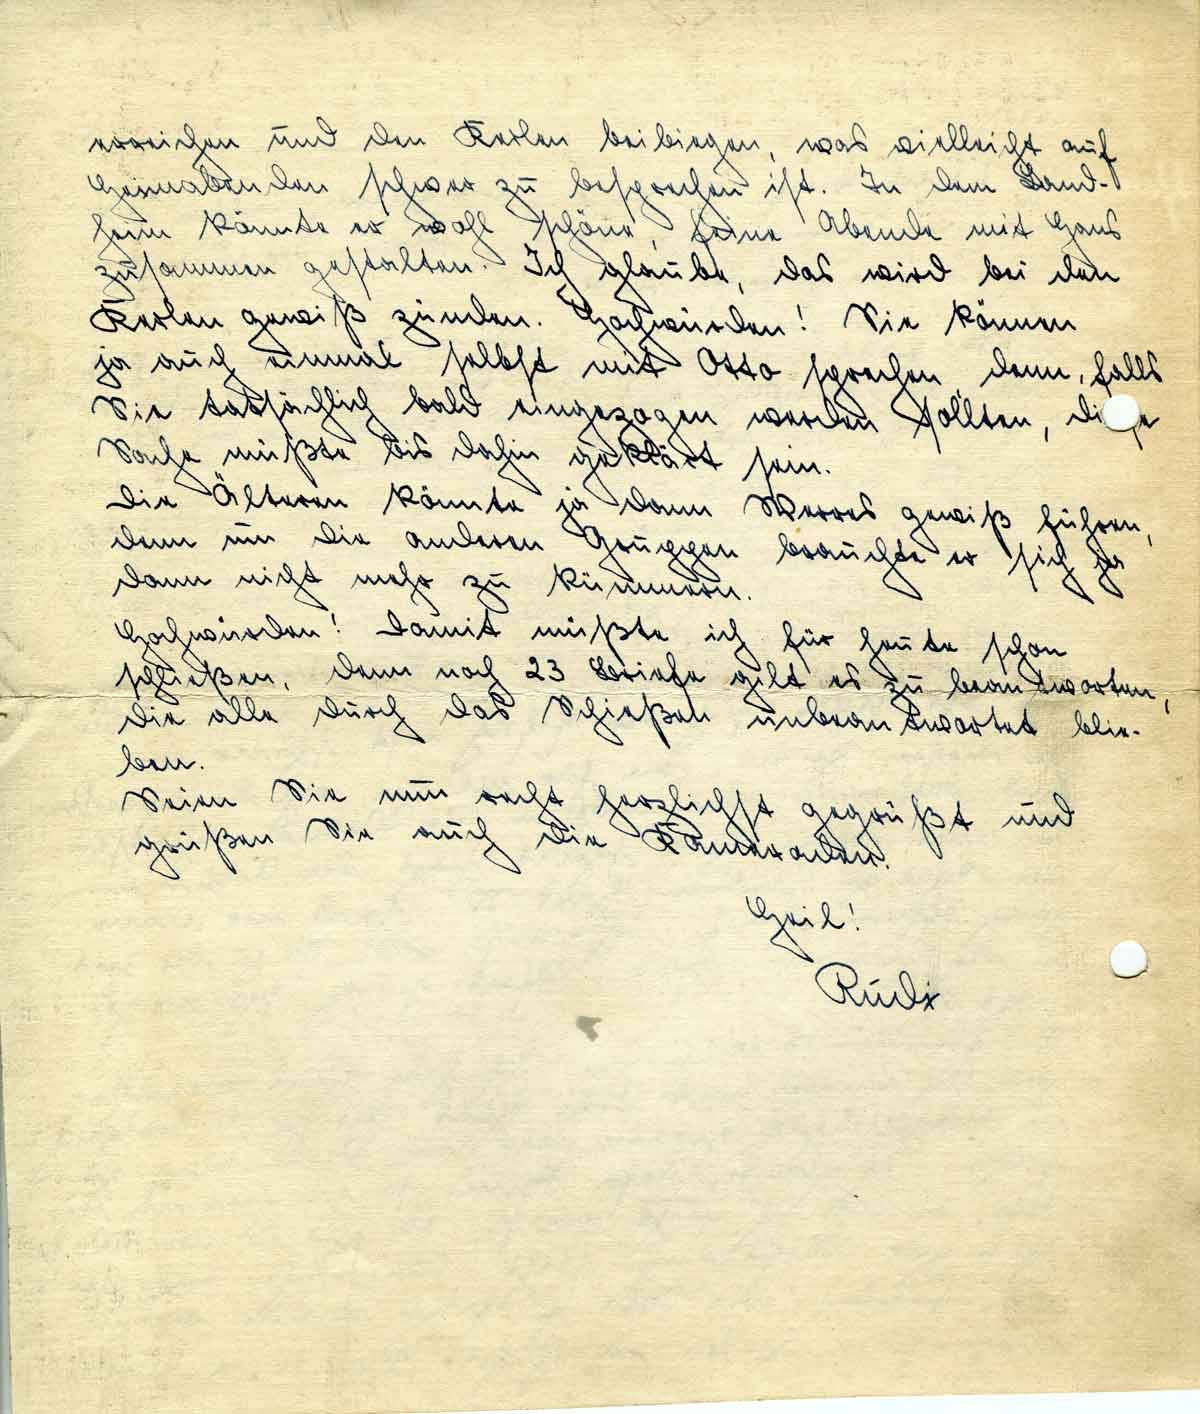 erreichen und den Kerlen beibiegen, was vielleicht auf
Heimabenden schwer zu besprechen ist. In dem Land-
heim könnte er wohl schöne, feine Abende mit Hans
zusammen gestalten. Ich glaube, das wird bei den
Kerlen gewiß zünden. Hochwürden! Sie können
ja auch einmal selbst mit Otto sprechen, denn, falls
Sie tatsächlich bald eingezogen werden sollten, diese
Sache müßte bis dahin geklärt sein.
Die Älteren könnte ja dann Werres gewiß führen,
denn um die anderen Gruppen brauchte er sich ja
dann nicht mehr zu kümmern.
Hochwürden! Damit müßte ich für heute schon
schließen, denn noch 23 Briefe gilt es zu beantworten,
die alle durch das Schießen unbeantwortet blie-
ben.
Seien Sie nun recht herzlichst gegrüßt und
grüßen Sie auch die Kameraden.
Heil!
Rudi